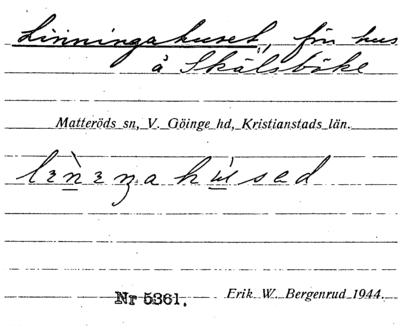 Linningahuset, frn hus
å Skälsböke
Matteröds sn, V. Göinge hd, Kristianstads län.
Nr 5361.
Erik W. Bergenrud 1944.